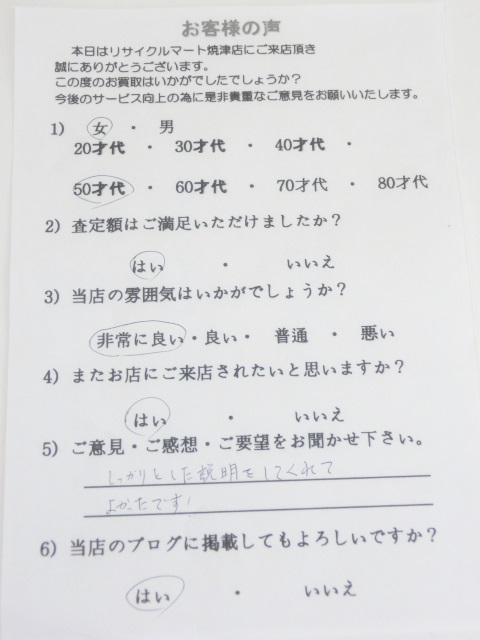 お客様の声
本日はリサイクルマート焼津店にご来店頂き
誠にありがとうございます。
この度のお買取はいかがでしたでしょうか？
今後のサービス向上の為に是非貴重なご意見をお願いいたします。
1) 女 ・ 男
20才代 ・ 30才代 ・ 40才代 ・
50才代 ・ 60才代 ・ 70才代 ・ 80才代
2) 査定額はご満足いただけましたか？
はい ・ いいえ
3) 当店の雰囲気はいかがでしょうか？
非常に良い・良い・ 普通 ・ 悪い
4) またお店にご来店されたいと思いますか？
はい ・ いいえ
5) ご意見・ご感想・ご要望をお聞かせ下さい。
しっかりとした説明をしてくれて
よかたです!
6) 当店のブログに掲載してもよろしいですか？
はい ・ いいえ